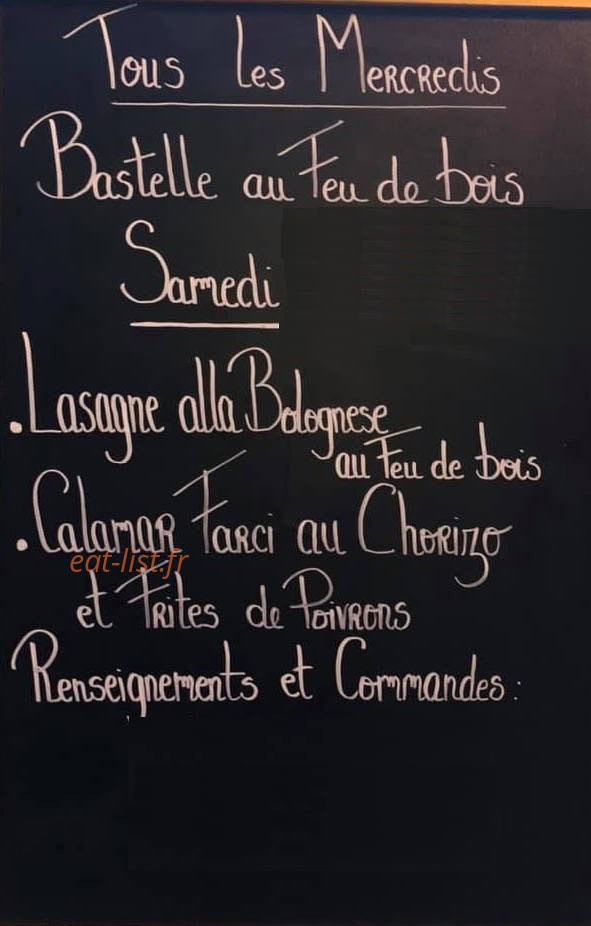 Tous les Mercredis
Bastelle au Feu de bois
Samedi
. Lasagne alla Bolognese
au Feu de bois
. Calamar Farci au Chorizo
eat-list.fr
et Frites de Poivrons
Renseignements et Commandes :